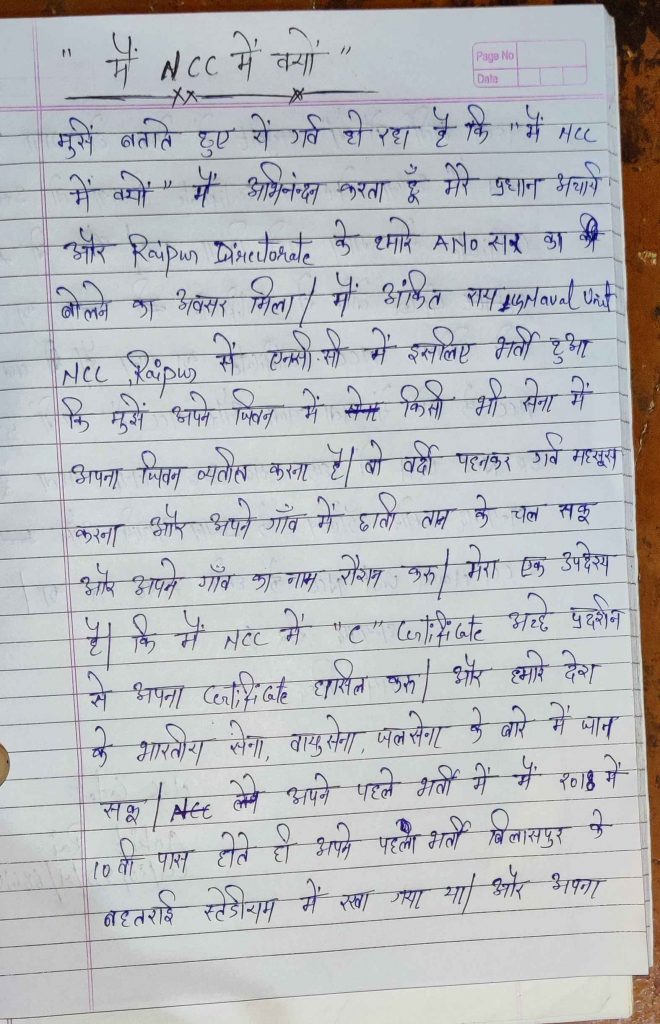 " मैं NCC में क्यों "
Page No
Date
मुझें बताते हुए ये गर्व हो रहा है कि "मैं NCC
में क्यों" मैं अभिनंदन करता हूँ मेरे प्रधान अचार्य
और Raipur Directorate के हमारे ANO सर का की
बोलने का अवसर मिला| मैं अंकित राय Naval Unit
NCC, Raipur में एनसी.सी में इसलिए भर्ती हुआ
कि मुझें अपने जिवन में किसी भी सेना में
अपना जिवन व्यतीत करना है| वो वर्दी पहनकर गर्व महसूस
करना और अपने गाँव में छाती तान के चल सकू
और अपने गाँव का नाम रौशन करू| मेरा एक उपदेश्य
है| कि मैं NCC में "C" Certificate अच्छे प्रदर्शन
से अपना Certificate हासिल करू| और हमारे देश
के भारतीय सेना, वायुसेना, जलसेना के बारे में जान
सकू| अपने पहले भर्ती में मैं 2018 में
10 वी पास होते ही अपने पहला भर्ती बिलासपुर के
बहतराई स्टेडीयम में रखा गया था| और अपना